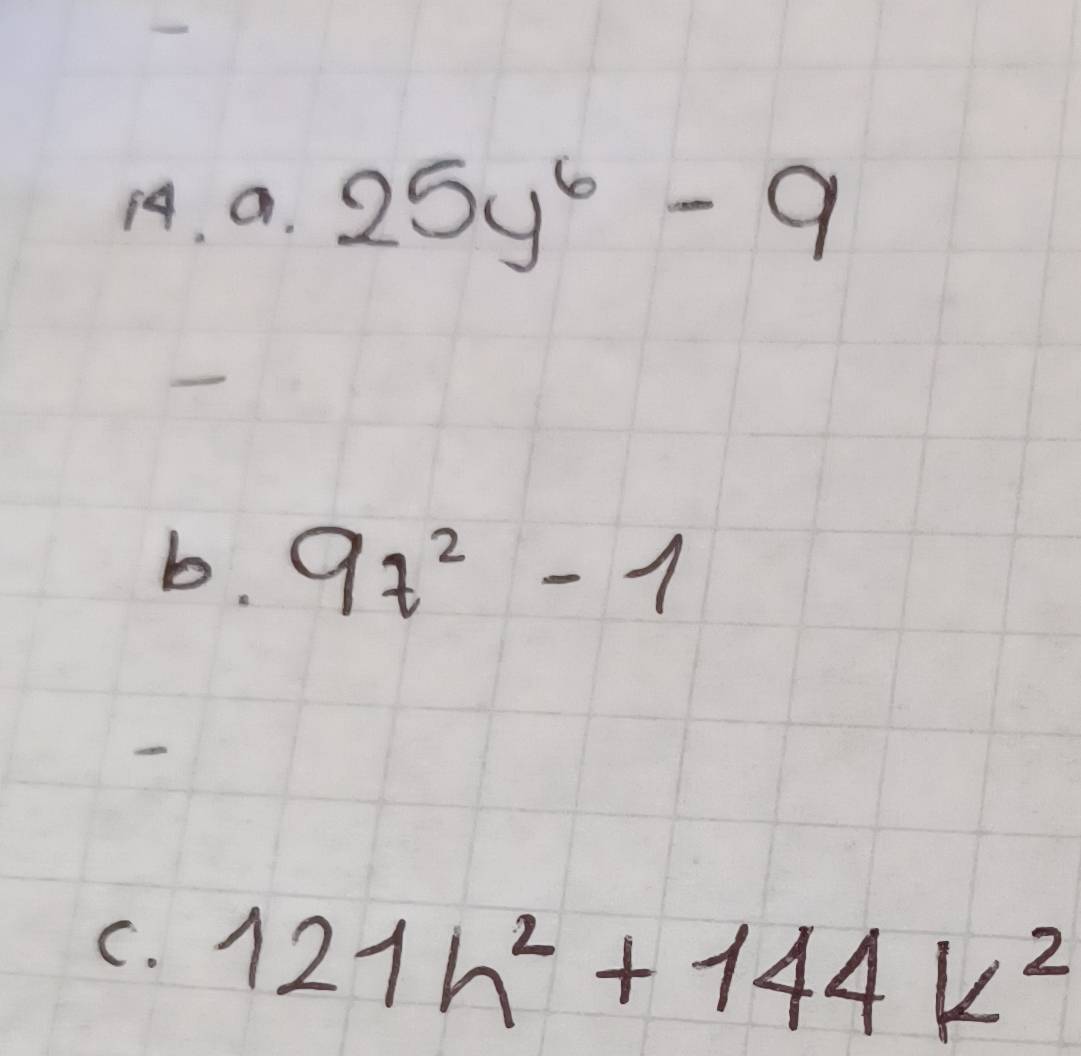 -
14. a. 25y⁶ - 9
-
b. 9z² - 1
-
c. 121h² + 144k²